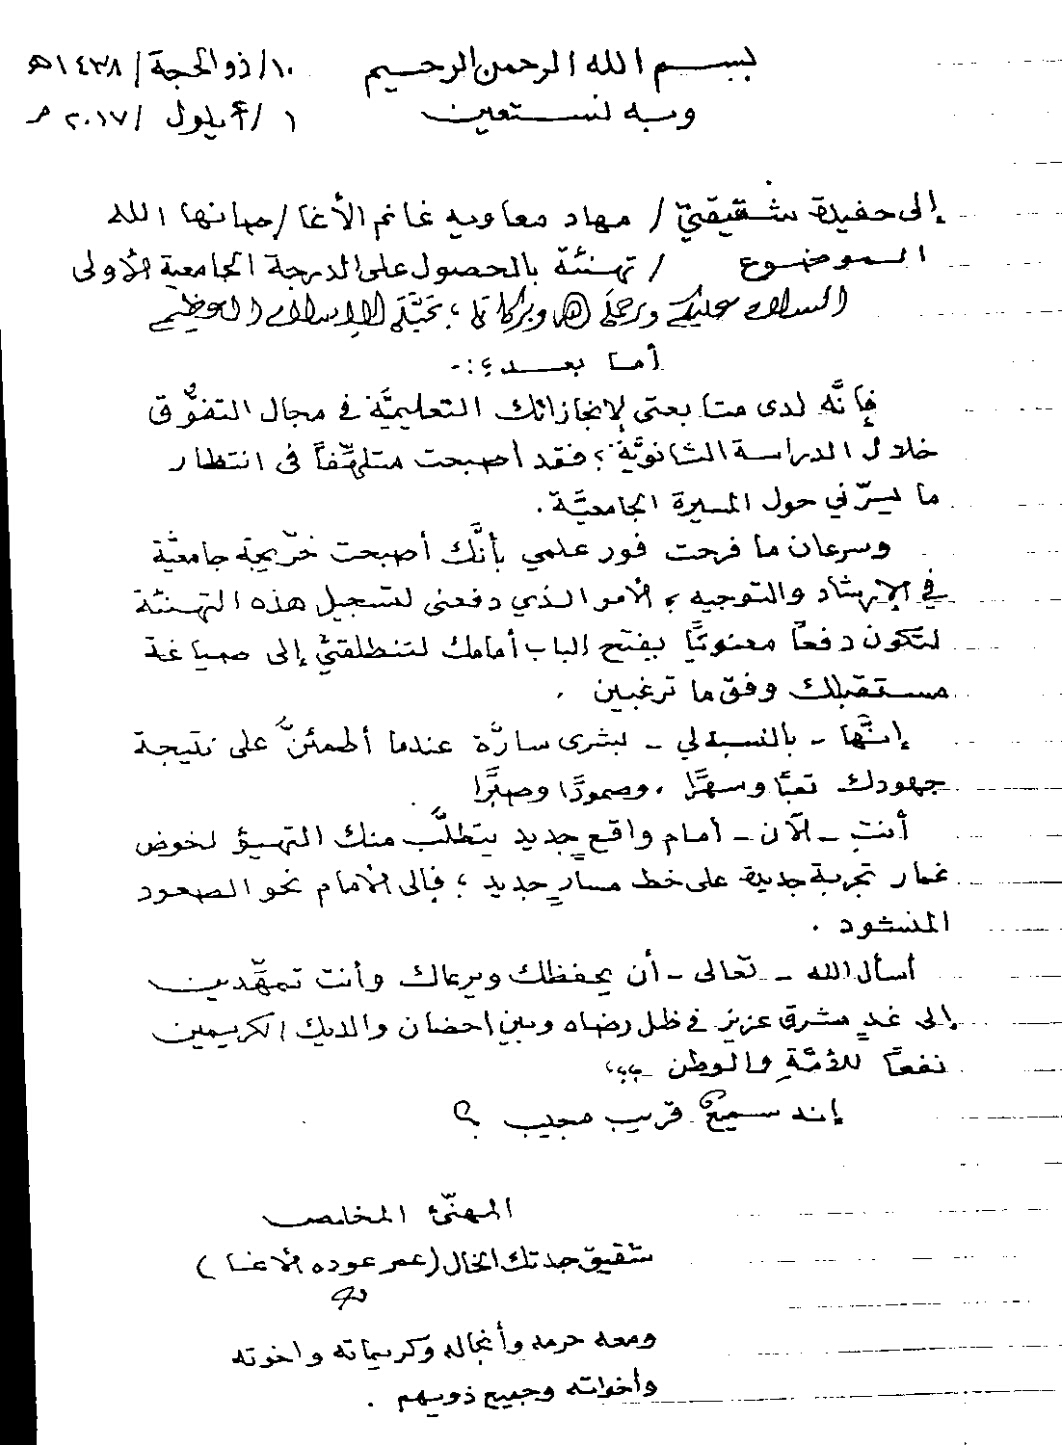 بسم الله الرحمن الرحيم
١٠/ذو الحجة/١٤٣٨هـ
وبه نستعين
١/أيلول/٢٠١٧م
إلى حفيدة شقيقتيّ/ مهاد معاوية غانم الأغا/صانها الله
الموضوع / تهنئة بالحصول على الدرجة الجامعية الأولى
السلام عليكم ورحمة الله وبركاته؛ تحيّة الإسلام العظيم
أما بعد؛:-
فإنَّه لدى متابعتي لإنجازاتك التعليميَّة في مجال التفوُّق
خلال الدراسة الثانويَّة؛ فقد أصبحت متلهِّفاً في انتظار
ما يسرّني حول المسيرة الجامعيَّة.
وسرعان ما فرحت فور علمي بأنَّك أصبحت خرّيجة جامعيَّة
في الإرشاد والتوجيه؛ الأمر الذي دفعني لتسجيل هذه التهنئة
لتكون دفعاً معنويًّا يفتح الباب أمامك لتنطلقيْ إلى صياغة
مستقبلك وفق ما ترغبين .
إنَّها - بالنسبة لي - لبشرى سارَّة عندما أطمئنُّ على نتيجة
جهودك تعبًا وسهرًا ، وصمودًا وصبرًا .
أنتِ - الآن - أمام واقعٍ جديد يتطلَّب منك التهيؤ لخوض
غمار تجربة جديدة على خط مسارٍ جديد؛ فإلى الأمام نحو الصعود
المنشود .
أسأل الله - تعالى - أن يحفظك ويرعاك وأنت تمهِّدين
إلى غدٍ مشرق عزيز في ظل رضاه وبين احضان والديك الكريمين
نفعاً للأمَّةِ والوطن ،،،
إنه سميعٌ قريب مجيب ؟
المهنّئ المخلص
شقيق جدتك الخال (عمر عوده الأغا)
ومعه حرمه وأنجاله وكريماته واخوته
وأخواته وجميع ذويهم .